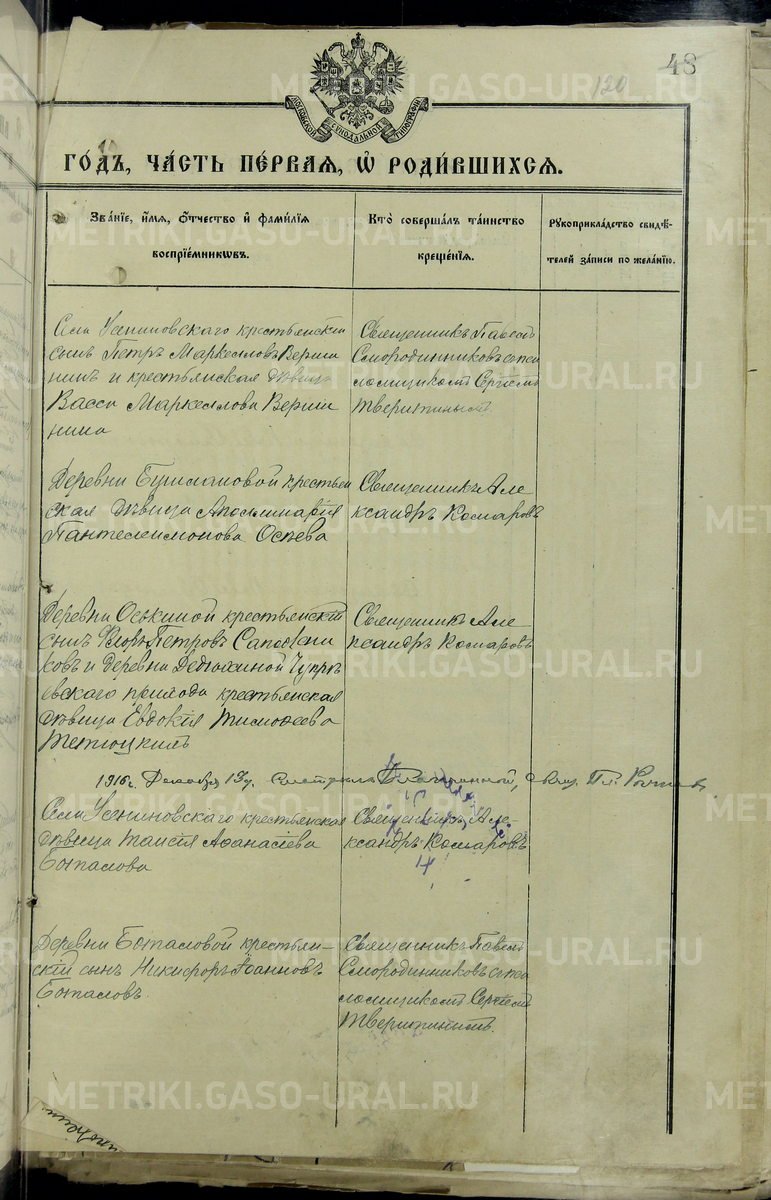 48
120
МОСКОВСКОЙ СѴНОДАЛЬНОЙ ТИПОГРАФІИ
ГО́ДЪ, ЧА́СТЬ ПЕ́РВАЯ, Ѡ҆ РОДИ́ВШИХСЯ.
Зва́нїе, и҆́мя, ѻ҆́тчество и҆ фами́лїя
воспрїе́мникѡвъ.
Кто̀ соверша́лъ та́инство
креще́нїя.
Рꙋкоприкла́дство свидѣ́-
телей за́писи по жела́нїю.
Села Усениновскаго крестьянскій
сынъ Петръ Маркелловъ Верши
нинъ и крестьянская дѣвица
Васса Маркеллова Верши
нина
Священникъ Павелъ
Смородинниковъ съ пса
ломщикомъ Сергѣемъ
Тверитинымъ
Деревни Бушлановой крестьян
ская дѣвица Аполлинарія
Пантелеимонова Осѣева
Священникъ Але
ксандръ Комаровъ
Деревни Оськиной крестьянскій
сынъ Флоръ Петровъ Сапожни
ковъ и деревни Дедюхиной Чупрѣ
евскаго прихода крестьянская
дѣвица Евдокія Тимоѳеева
Священникъ Але
ксандръ Комаровъ
1916 г. Декабря 13 д. Благочинный, Свящ.
Села Усениновскаго крестьянская
дѣвица Таисія Аѳанасіева
Боталова
Священникъ Але-
ксандръ Комаровъ
Деревни Боталовой крестьян-
скій сынъ Никифоръ Іоанновъ
Боталовъ.
Священникъ Павелъ
Смородинниковъ съ пса
ломщикомъ Сергѣемъ
Тверитинымъ.
METRIKI.GASO-URAL.RU